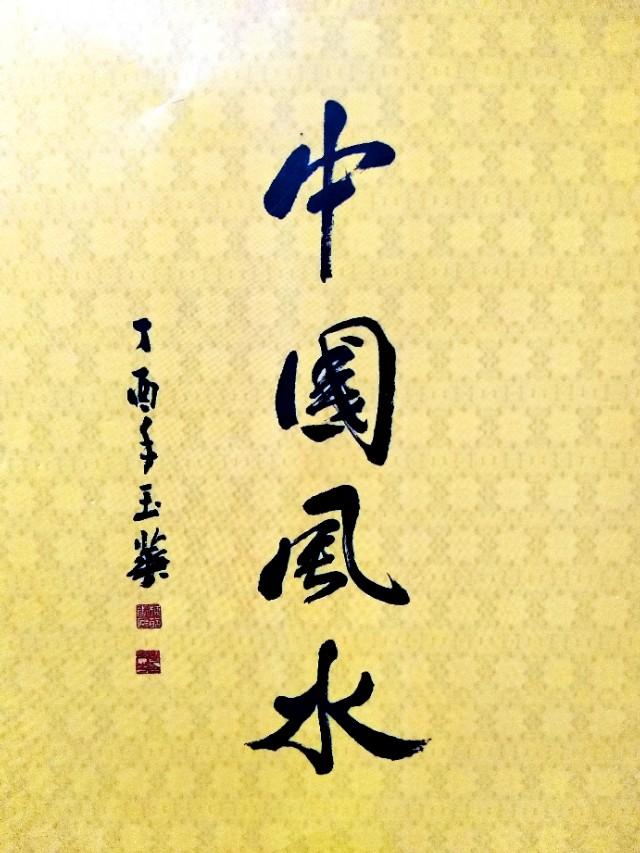 中國風水
丁酉年玉英